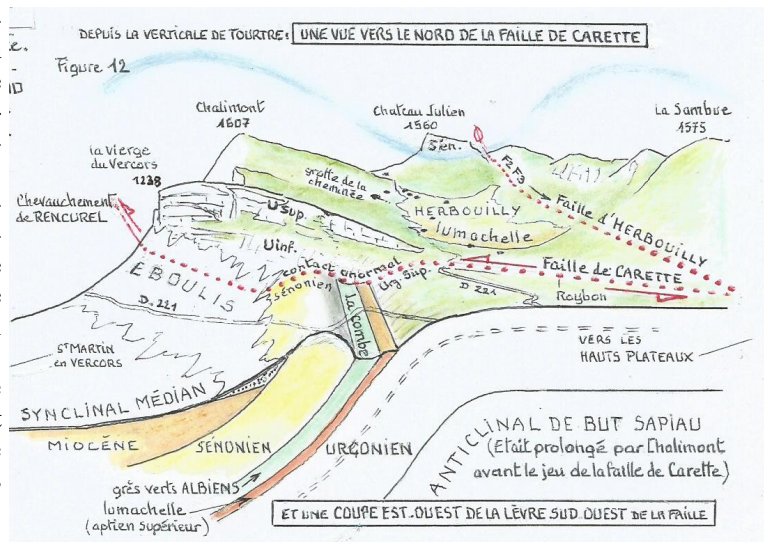 DEPUIS LA VERTICALE DE TOURTRE: UNE VUE VERS LE NORD DE LA FAILLE DE CARETTE
Figure 12
Chalimont
1607
Chateau Julien
1560
La Sambue
1575
Sén.
F2 F3
la vierge
du Vercors
1238
grotte de la
cheminée
Chevauchement
de RENCUREL
U Sup.
HERBOUILLY
lumachelle
Faille d'HERBOUILLY
U inf.
contact anormal
Urg Sup.
Faille de CARETTE
EBOULIS
sénonien
D.221
D.221
Roybon
la combe
St MARTIN
en VERCORS
VERS LES
HAUTS PLATEAUX
SYNCLINAL MÉDIAN
MIOCÈNE
SÉNONIEN
URGONIEN
ANTICLINAL DE BUT SAPIAU
(Etait prolongé par Chalimont
avant le jeu de la faille de Carette)
grès verts ALBIENS
lumachelle
(aptien supérieur)
ET UNE COUPE EST.OUEST DE LA LÈVRE SUD.OUEST DE LA FAILLE